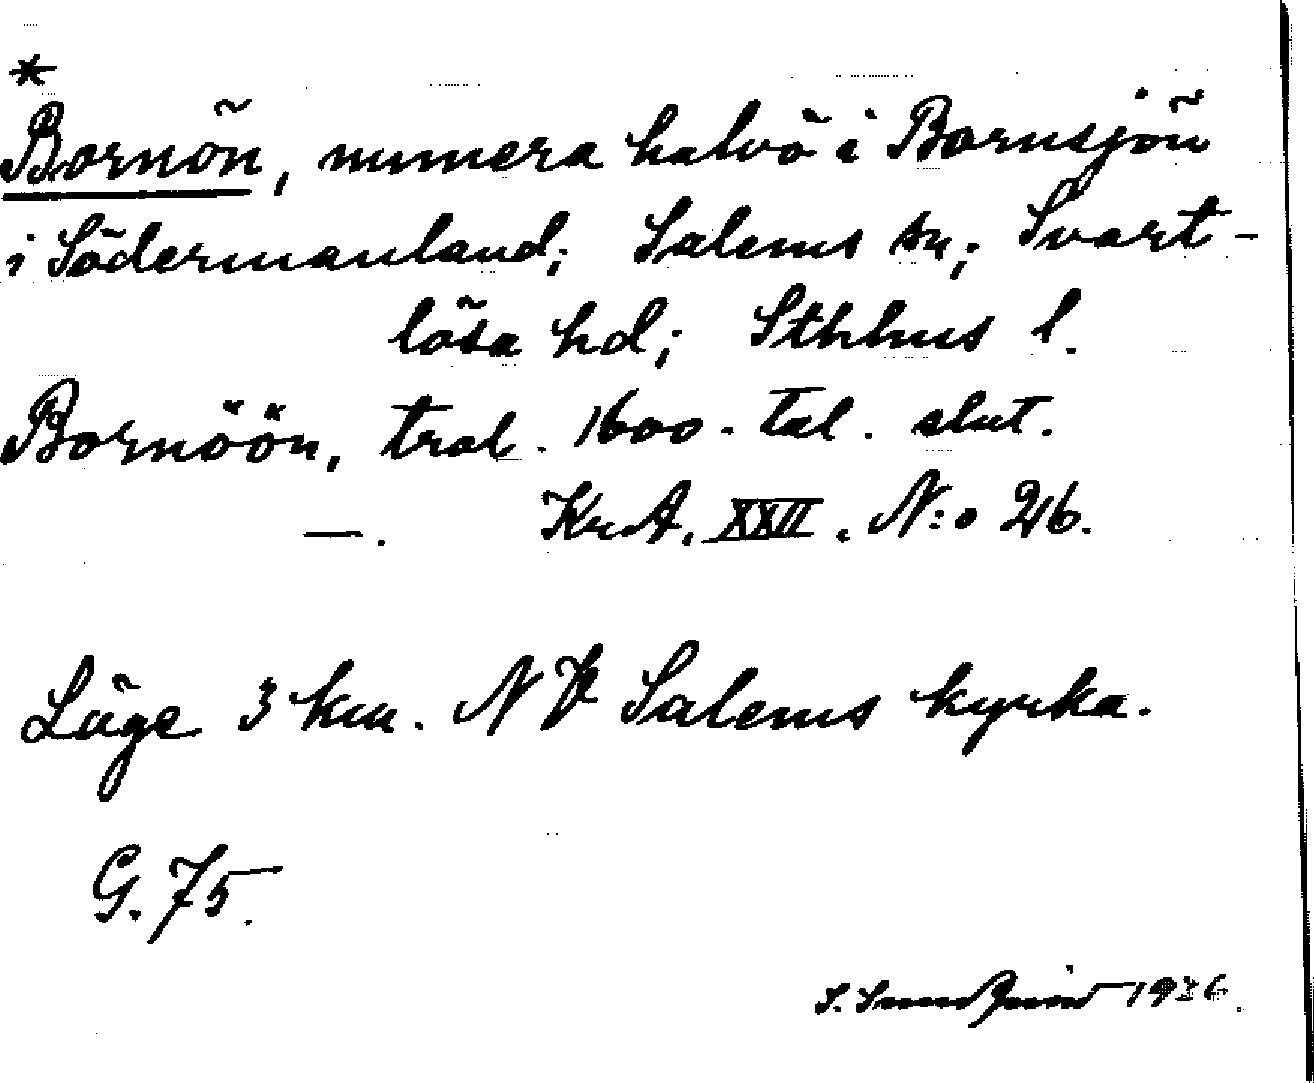 *
Bornön, numera halvö i Bornsjön
i Södermanland; Salems sn; Svart-
lösa hd; Sthlms l.
Bornöön, trol. 1600-tal. slut.
—. KrA. XXII. N:o 26.
Läge 3 km. NV Salems kyrka.
G. 75.
S. 1936.